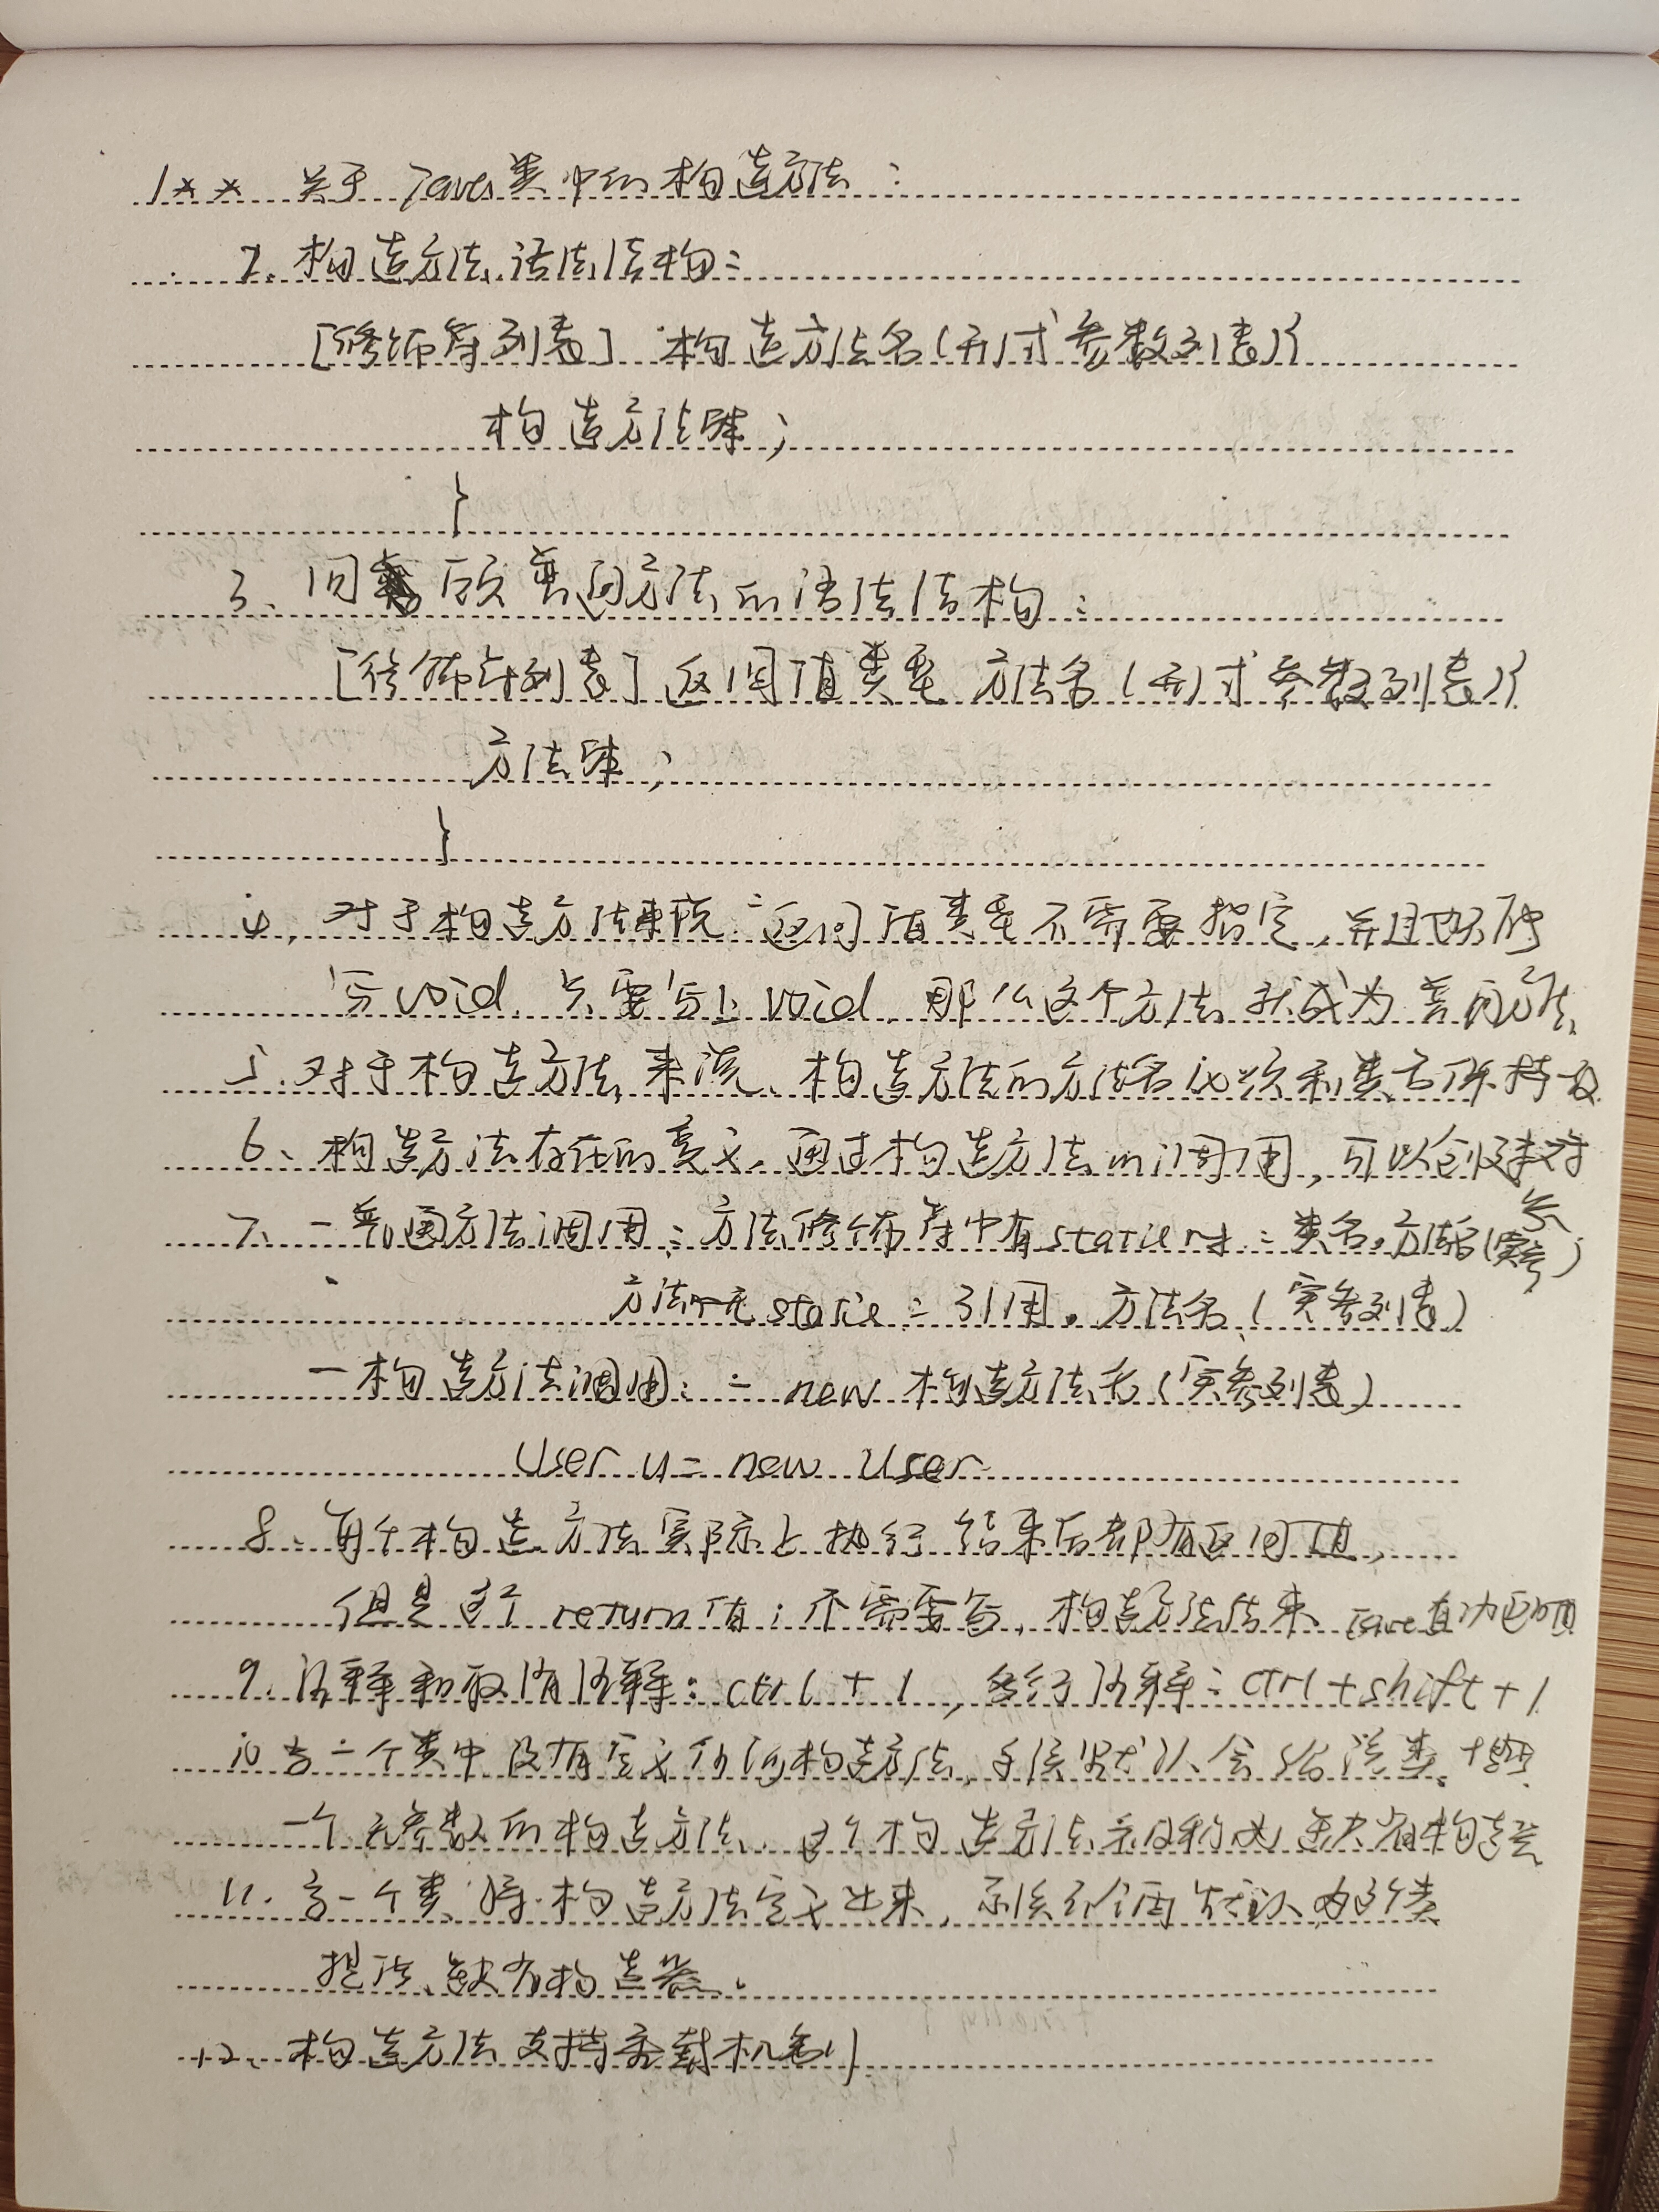 /** 关于Java类中的构造方法：
2、构造方法语法结构：
[修饰符列表] 构造方法名(形式参数列表){
构造方法体；
}
3、回顾普通方法的语法结构：
[修饰符列表] 返回值类型 方法名(形式参数列表){
方法体；
}
4、对于构造方法来说“返回值类型不需要指定，并且也不能
写void，只要写上void，那么这个方法就成为普通方法
5、对于构造方法来说、构造方法的方法名必须和类名保持一致
6、构造方法存在的意义，通过构造方法的调用，可以创建对象
7、一普通方法调用：方法修饰符中有static时：类名.方法名(实参)
方法中无static：引用.方法名(实参列表)
一构造方法调用：= new 构造方法名(实参列表)
User u = new User
8、每个构造方法实际上执行结束后都有返回值，
但是这个return值；不需要写，构造方法结束Java自动返回值
9、注释和取消注释：ctrl + /，多行注释：ctrl + shift + /
10 当一个类中没有定义任何构造方法，系统默认会给该类提供
一个无参数的构造方法，这个构造方法被称为缺省构造器
11、当一个类将构造方法定义出来，系统不再默认为这个类
提供缺省构造器。
12、构造方法支持重载机制